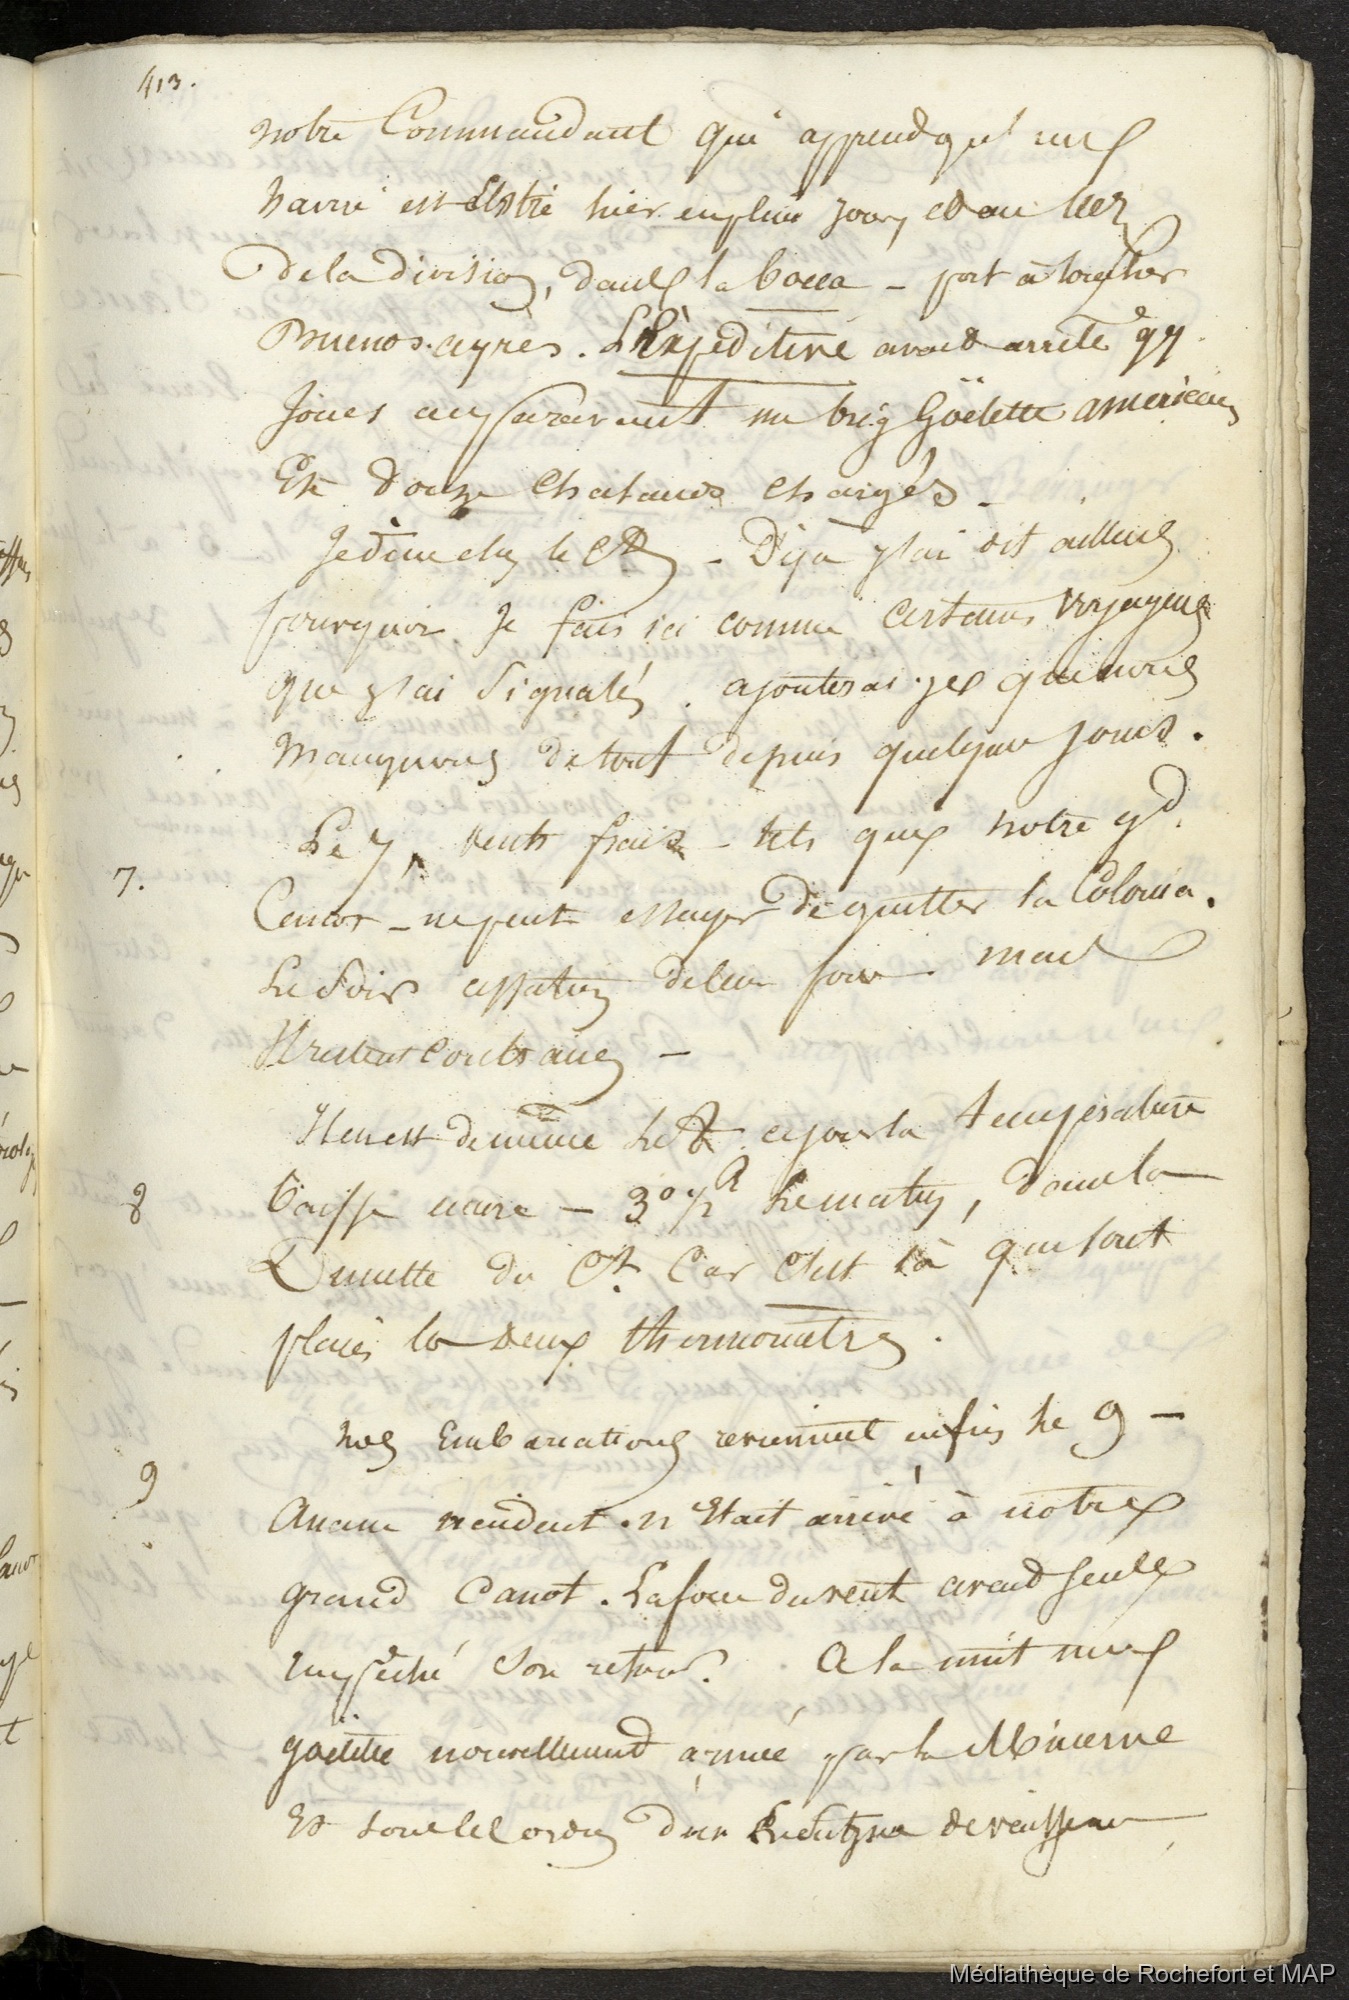 413.
notre Commandant qui apprend qu'un
navire est Entré hier en plein jour, et au nez
de la division, dans la bocca - port à toucher
Buenos-ayres. L'Expéditive avait arrêté qq
jours auparavant un brig Goëlette américain
Et douze chalands chargés -
Je dîne chez le Ct - Déjà j'ai dit ailleurs
pourquoi. Je fais ici comme certains voyageurs
que j'ai signalés. ajouterai-je que nous
manquons de tout depuis quelques jours.
7.
Le 7, vents frais - tels que notre gd
Canot - ne peut essayer de quitter la Colonia.
Le soir de leur force mais
Ils restent contraires -
8
Il en est de même le 8. ce jour la température
baisse encore - 3° 1/2 R le matin, dans la
Dunette du Ct. Car c'est là que sont
placés les deux thermomètres.
9
nos Embarcations reviennent enfin le 9 -
Aucun accident n'était arrivé à notre
grand Canot. La force du vent avait seule
empêché son retour. A la nuit une
goëlette nouvellement armée par la Minerve
Et sous les ordres d'un Lieutenant de vaisseau
Médiathèque de Rochefort et MAP